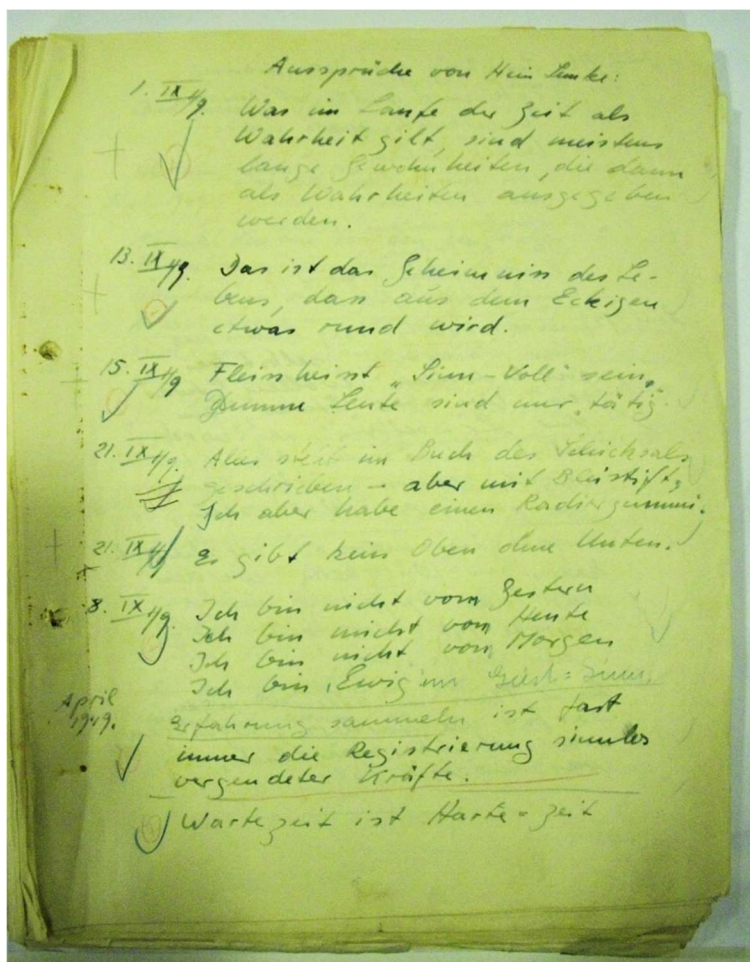 Aussprüche von Hein Semke:
1. IX 49. Was im Laufe der Zeit als
Wahrheit gilt, sind meistens
lange Gewohnheiten, die dann
als Wahrheiten ausgegeben
werden.
13. IX 49. Das ist das Geheimniss des Le-
bens, dass aus dem Eckigen
etwas rund wird.
15. IX 49 Fleiss heisst "Sinn-Voll" sein,
Dumme Leute sind nur "tätig".
21. IX 49. Alles steht im Buch des Schicksals
geschrieben - aber mit Bleistift,
Ich aber habe einen Radiergummi.
21. IX 49 Es gibt kein Oben ohne Unten.
8. IX 49. Ich bin nicht vom Gestern
Ich bin nicht vom Heute
Ich bin nicht vom Morgen
Ich bin "Ewig" im
April
1949.
Erfahrung sammeln ist fast
immer die Registrierung sinnlos
vergendeter Kräfte.
Wartezeit ist Harte=zeit